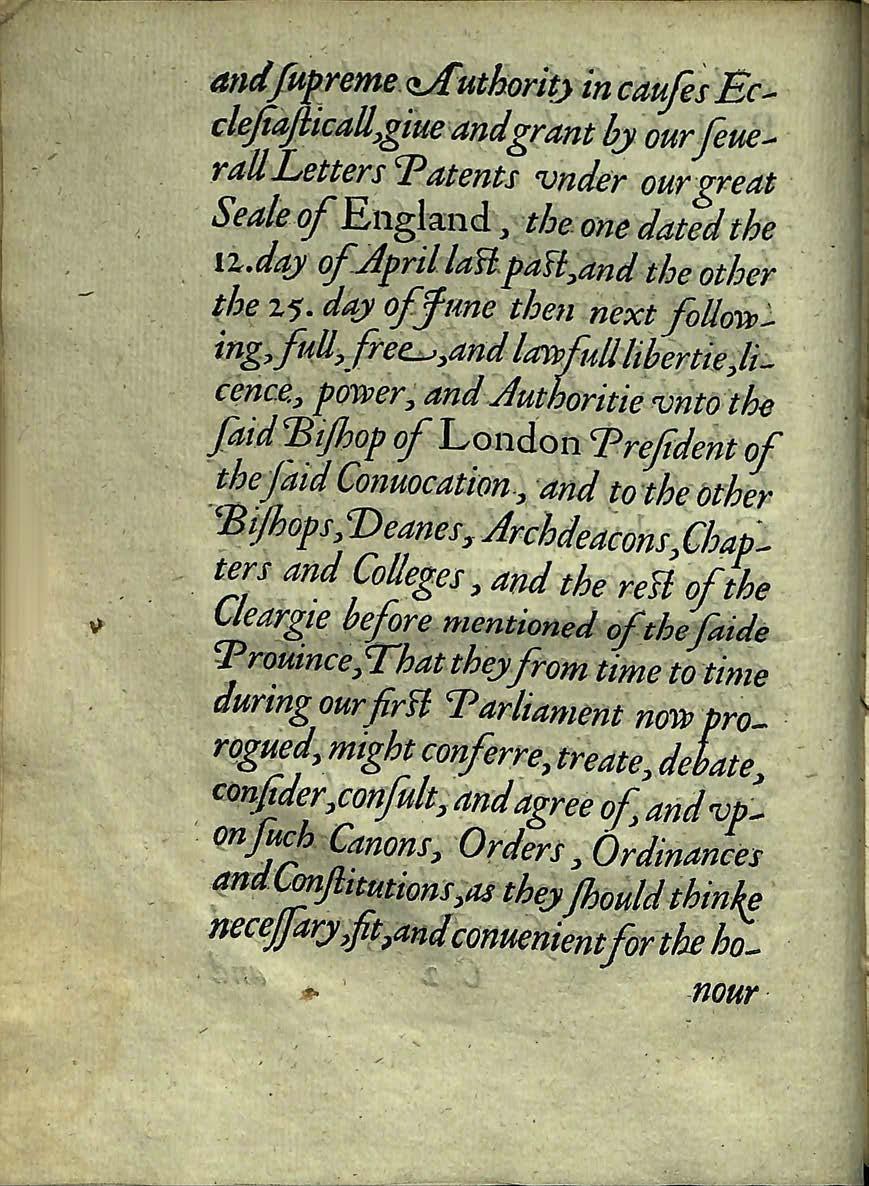 and ſupreme Authority in cauſes Ec-
cleſiaſticall,giue and grant by our ſeue-
rall Letters Patents vnder our great
Seale of England, the one dated the
12.day of April laſt paſt,and the other
the 25. day of June then next follow-
ing, full, free,and lawfull libertie,li-
cence, power, and Authoritie vnto the
ſaid Biſhop of London Preſident of
the ſaid Conuocation, and to the other
Biſhops,Deanes, Archdeacons,Chap-
ters and Colleges, and the reſt of the
Cleargie before mentioned of the ſaide
Prouince,That they from time to time
during our firſt Parliament now pro-
rogued, might conferre, treate, debate,
conſider,conſult, and agree of, and vp-
on ſuch Canons, Orders, Ordinances
and Conſtitutions,as they ſhould thinke
neceſſary,fit,and conuenient for the ho-
nour